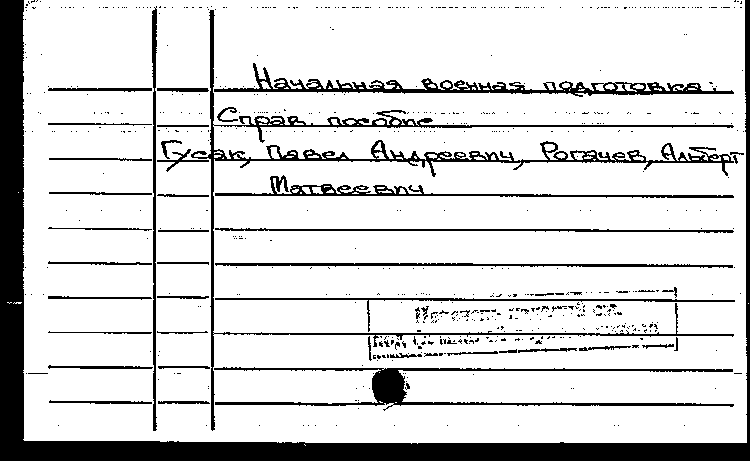 Начальная военная подготовка:
Справ. пособие
Гусак, Павел Андреевич, Рогачев, Альберт
Матвеевич